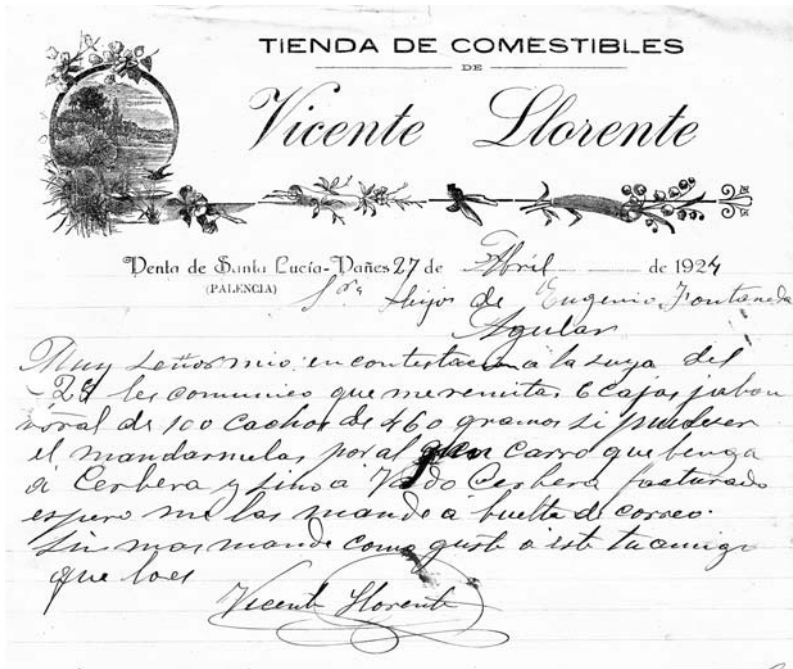 TIENDA DE COMESTIBLES
DE
Vicente Llorente
Venta de Santa Lucía-Vañes 27 de Abril de 1924
(PALENCIA)
Sres Hijos de Eugenio Fontaneda
Aguilar
Muy Señor mio: en contestacion a la suya del
25 les comunico que me remitas 6 cajas jabon
de 100 cachos de 460 gramos si pudieser
el mandarmelas por al carro que benga
a Cerbera y sino a Vado Cerbera facturado
espero me las mande a buelta de correo.
Sin mas mande como guste a este tu amigo
que lo es
Vicente Llorente